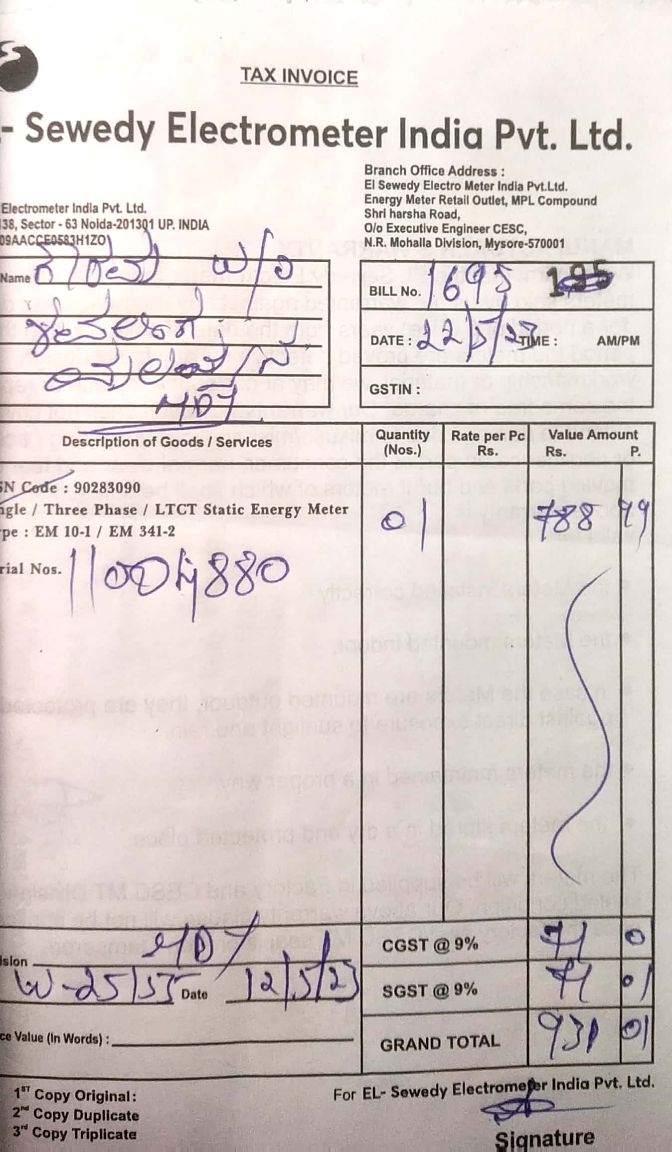 TAX INVOICE
- Sewedy Electrometer India Pvt. Ltd.
Electrometer India Pvt. Ltd.
38, Sector - 63 Noida-201301 UP. INDIA
09AACCE0583H1ZO
Branch Office Address :
El Sewedy Electro Meter India Pvt.Ltd.
Energy Meter Retail Outlet, MPL Compound
Shri harsha Road,
O/o Executive Engineer CESC,
N.R. Mohalla Division, Mysore-570001
Name W/O
MDY
BILL No. 1695
DATE : 22/5/23 TIME : AM/PM
GSTIN :
Description of Goods / Services Quantity (Nos.) Rate per Pc Rs. Value Amount Rs. P.
SN Code : 90283090
ngle / Three Phase / LTCT Static Energy Meter 01 788 99
pe : EM 10-1 / EM 341-2
rial Nos. 11004880
ision MDY CGST @ 9% 71 0
W-25/55 Date 12/5/23 SGST @ 9% 71 01
ce Value (In Words) : GRAND TOTAL 931 01
For EL- Sewedy Electrometer India Pvt. Ltd.
1ST Copy Original:
2nd Copy Duplicate
3rd Copy Triplicate
Signature